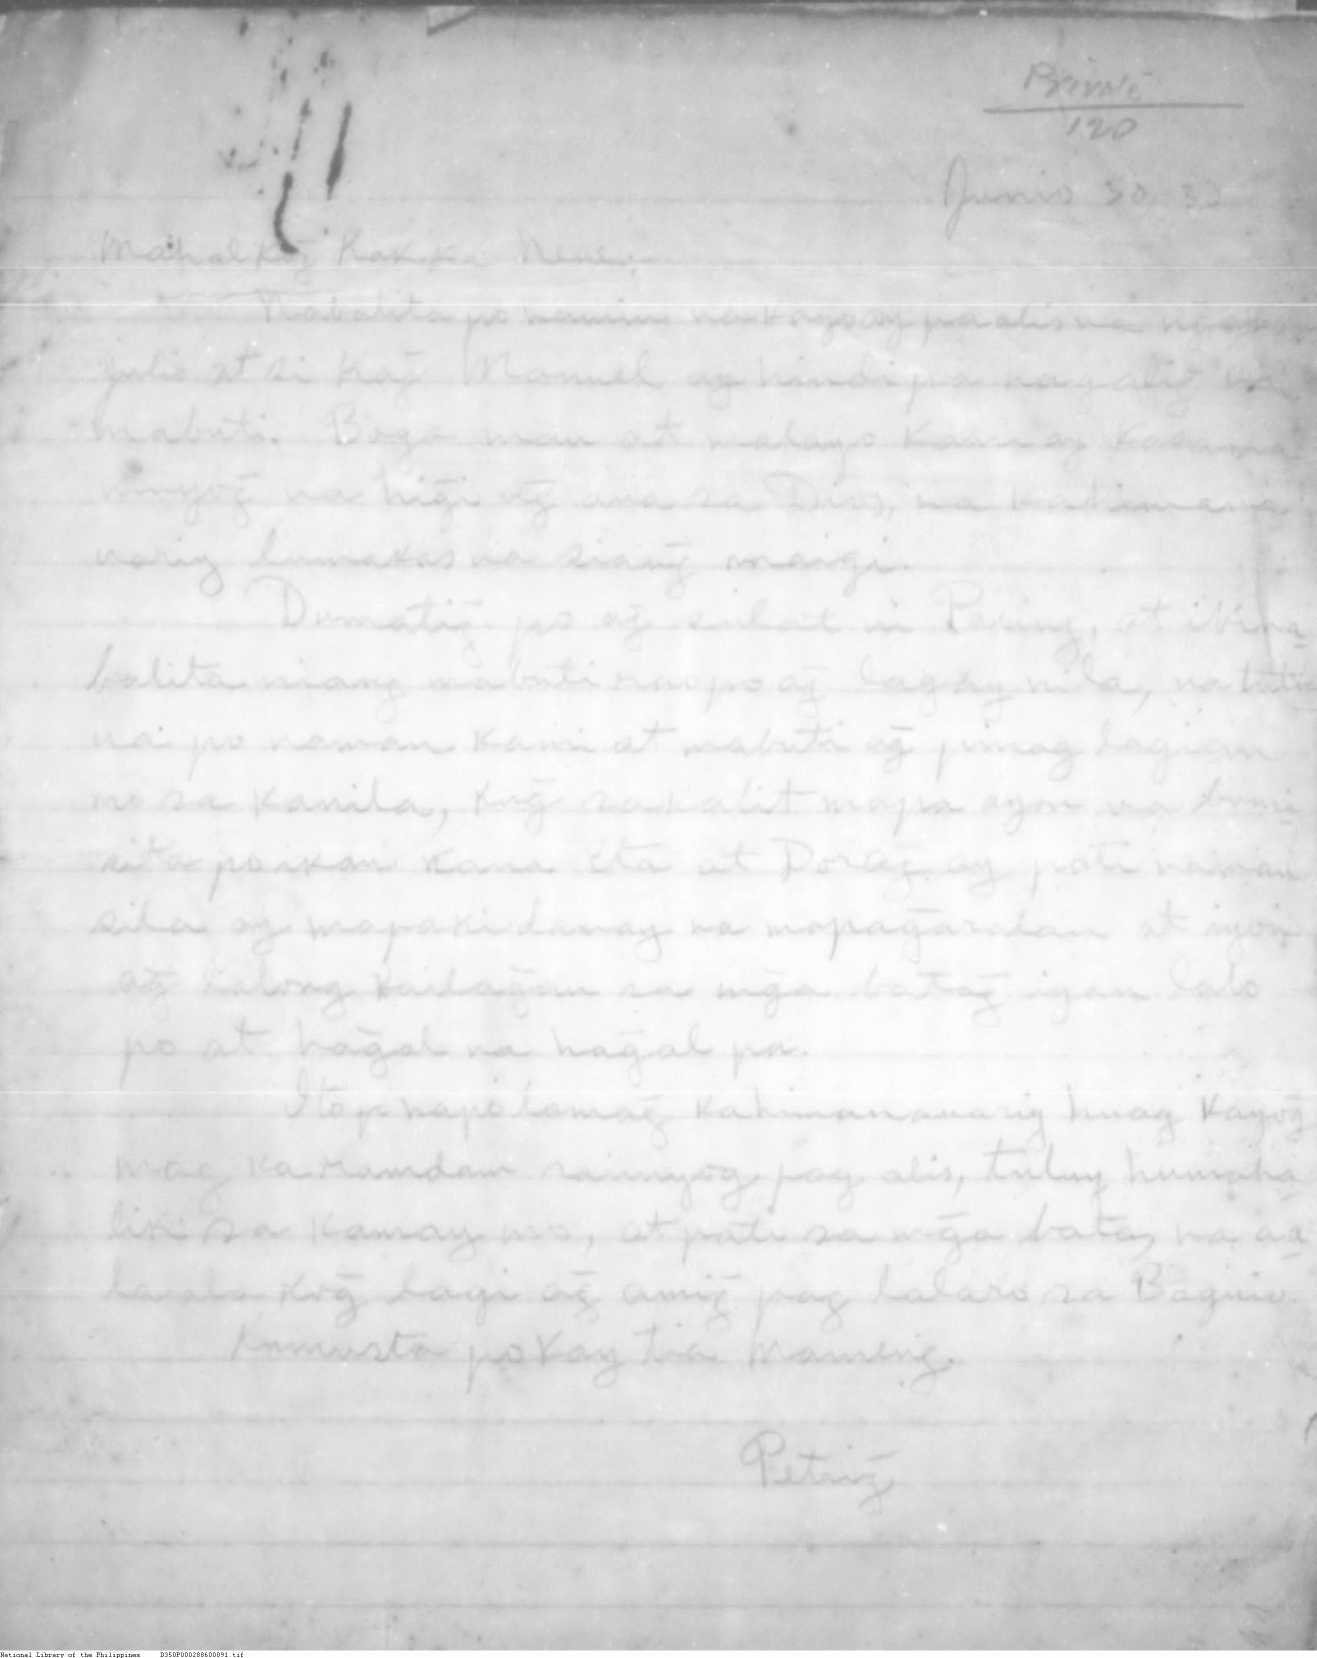 Private
120
Junio 30, 32
Mahal kog̃ Kakka Nene:
Nabalita po namin na kayo ay paalis na ngayon
Julio at si Kag̃ Manuel ay hindi pa nagalig̃ na
mabuti. Boga man at malayo kami ay kasama
ninyog̃ na hig̃i ng̃ awa sa Dios, na kahimana
nariy lumakas na siang̃ maigi.
Dumatig̃ po ag̃ sulat ni Pering, at ibina
balita niang mabuti raw po ag̃ lagay nila, na tutua
na po naman kami at mabuti ag̃ pinag bagian
mo sa kanila, kug̃ sakalit mapa ayon na bumi
sita po ikan kana Ita at Dorag̃ ay pati naman
sila ay mapaki
ag̃ lalong kailag̃an sa mg̃a batag̃ igan lalo
po at hag̃al na hag̃al pa.
Ito po napo lamag̃ kahimanauariy huag kayog̃
mag ka ramdam sainyog pag alis, tuluy humaha
lik sa kamay mo, at pati sa mg̃a bata, na aa
laala kog̃ lagi ag̃ amig̃ pag lalaro sa Baguio.
kumusta po kay tia Mameng.
Petrig̃
National Library of the Philippines D350P000288600891.tif